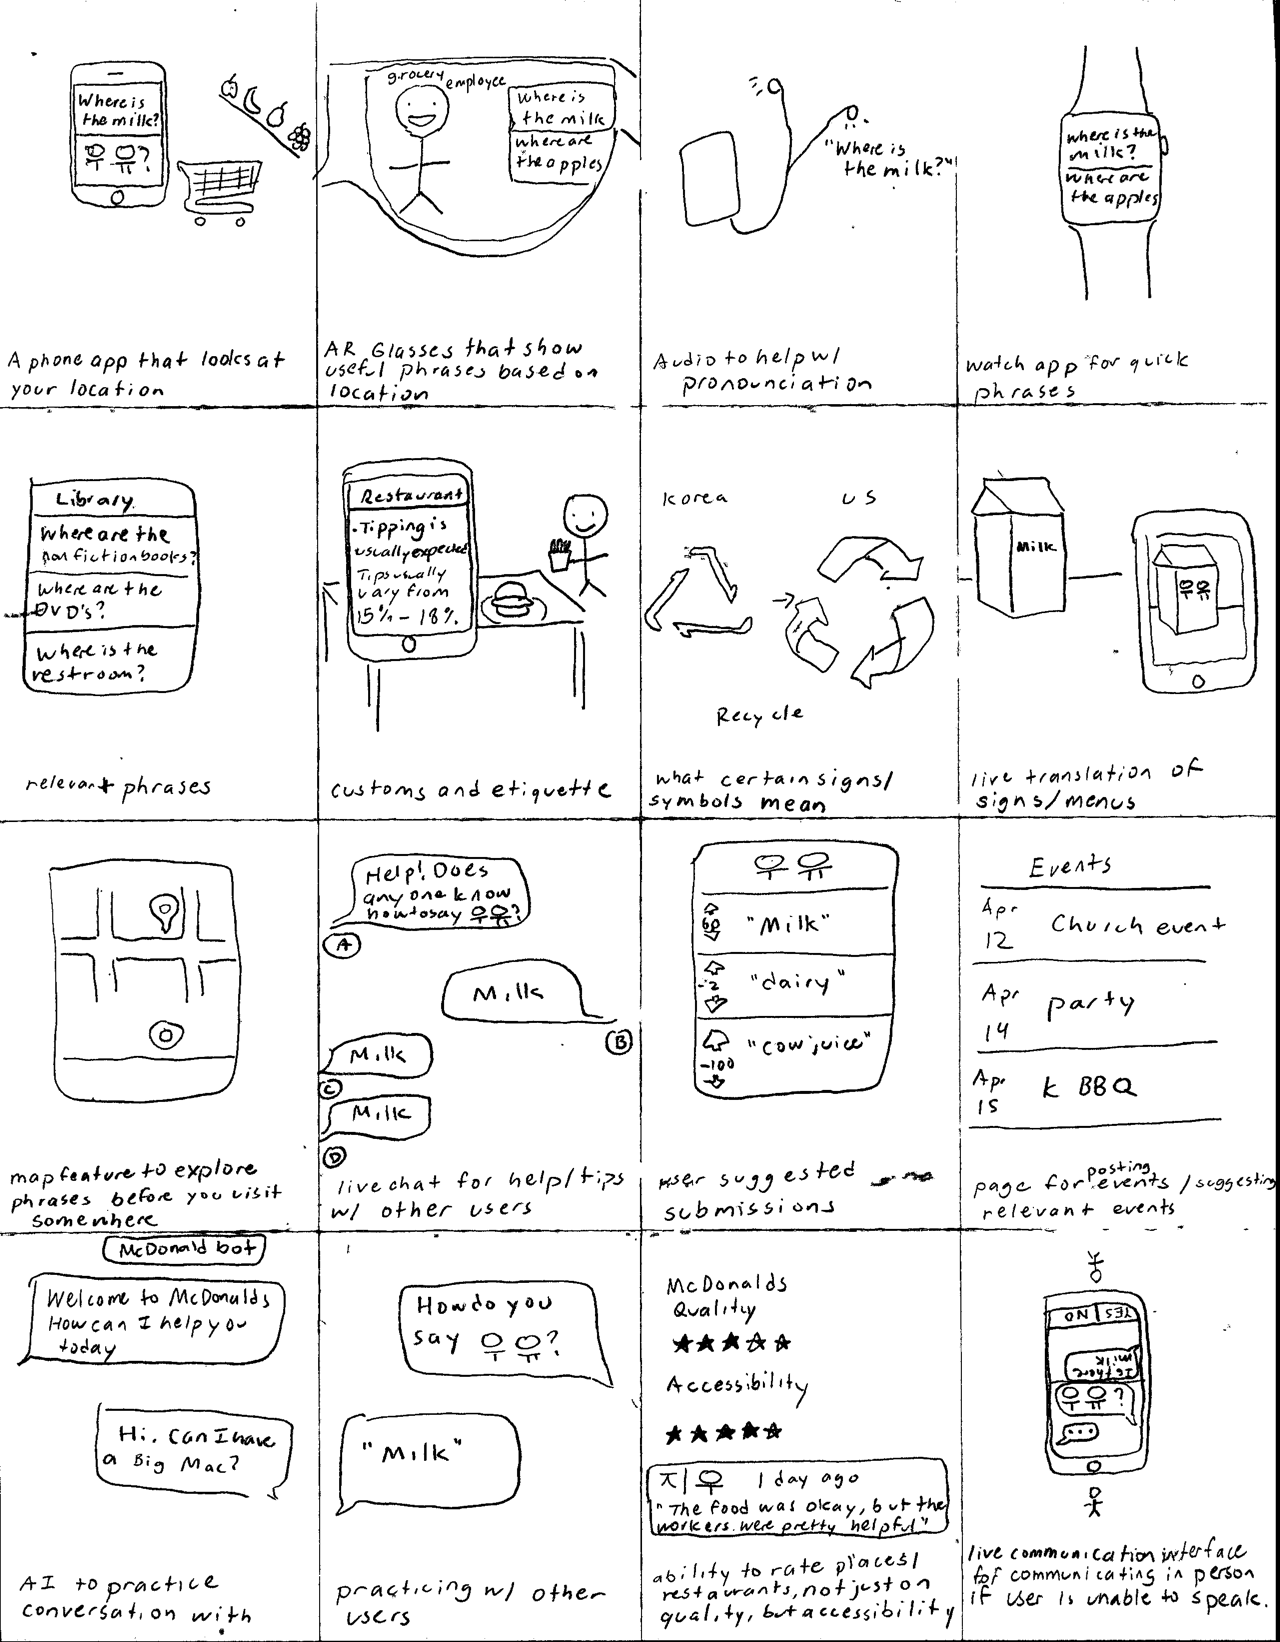 Where is
the milk?
우 유?
A phone app that looks at
your location
grocery employee
Where is
the milk
where are
the apples
AR Glasses that show
useful phrases based on
location
"Where is
the milk?"
Audio to help w/
pronounciation
where is the
milk?
where are
the apples
watch app for quick
phrases
Library
Where are the
non fiction books?
where are the
DVD's?
Where is the
restroom?
relevant phrases
Restaurant
·Tipping is
usually expected
Tips usually
vary from
15% - 18%.
customs and etiquette
Korea
US
Recycle
what certain signs/
symbols mean
Milk
우유
live translation of
signs/menus
map feature to explore
phrases before you visit
somewhere
Help! Does
any one know
how to say 우유?
A
Milk
B
Milk
C
Milk
D
live chat for help/tips
w/ other users
우 유
60
"Milk"
-2
"dairy"
-100
"cow juice"
user suggested
submissions
Events
Apr
12
Church event
Apr
14
party
Apr
15
K BBQ
page for posting events / suggesting
relevant events
McDonald bot
Welcome to McDonalds
How can I help you
today
Hi. Can I have
a Big Mac?
AI to practice
conversation with
How do you
say 우 유?
"Milk"
practicing w/ other
users
McDonalds
Quality
★★★☆☆
Accessibility
★★★★☆
지우 1 day ago
"The food was okay, but the
workers were pretty helpful"
ability to rate places/
restaurants, not just on
quality, but accessibility
YES NO
Is there
milk
우 유?
...
live communication interface
for communicating in person
if user is unable to speak.